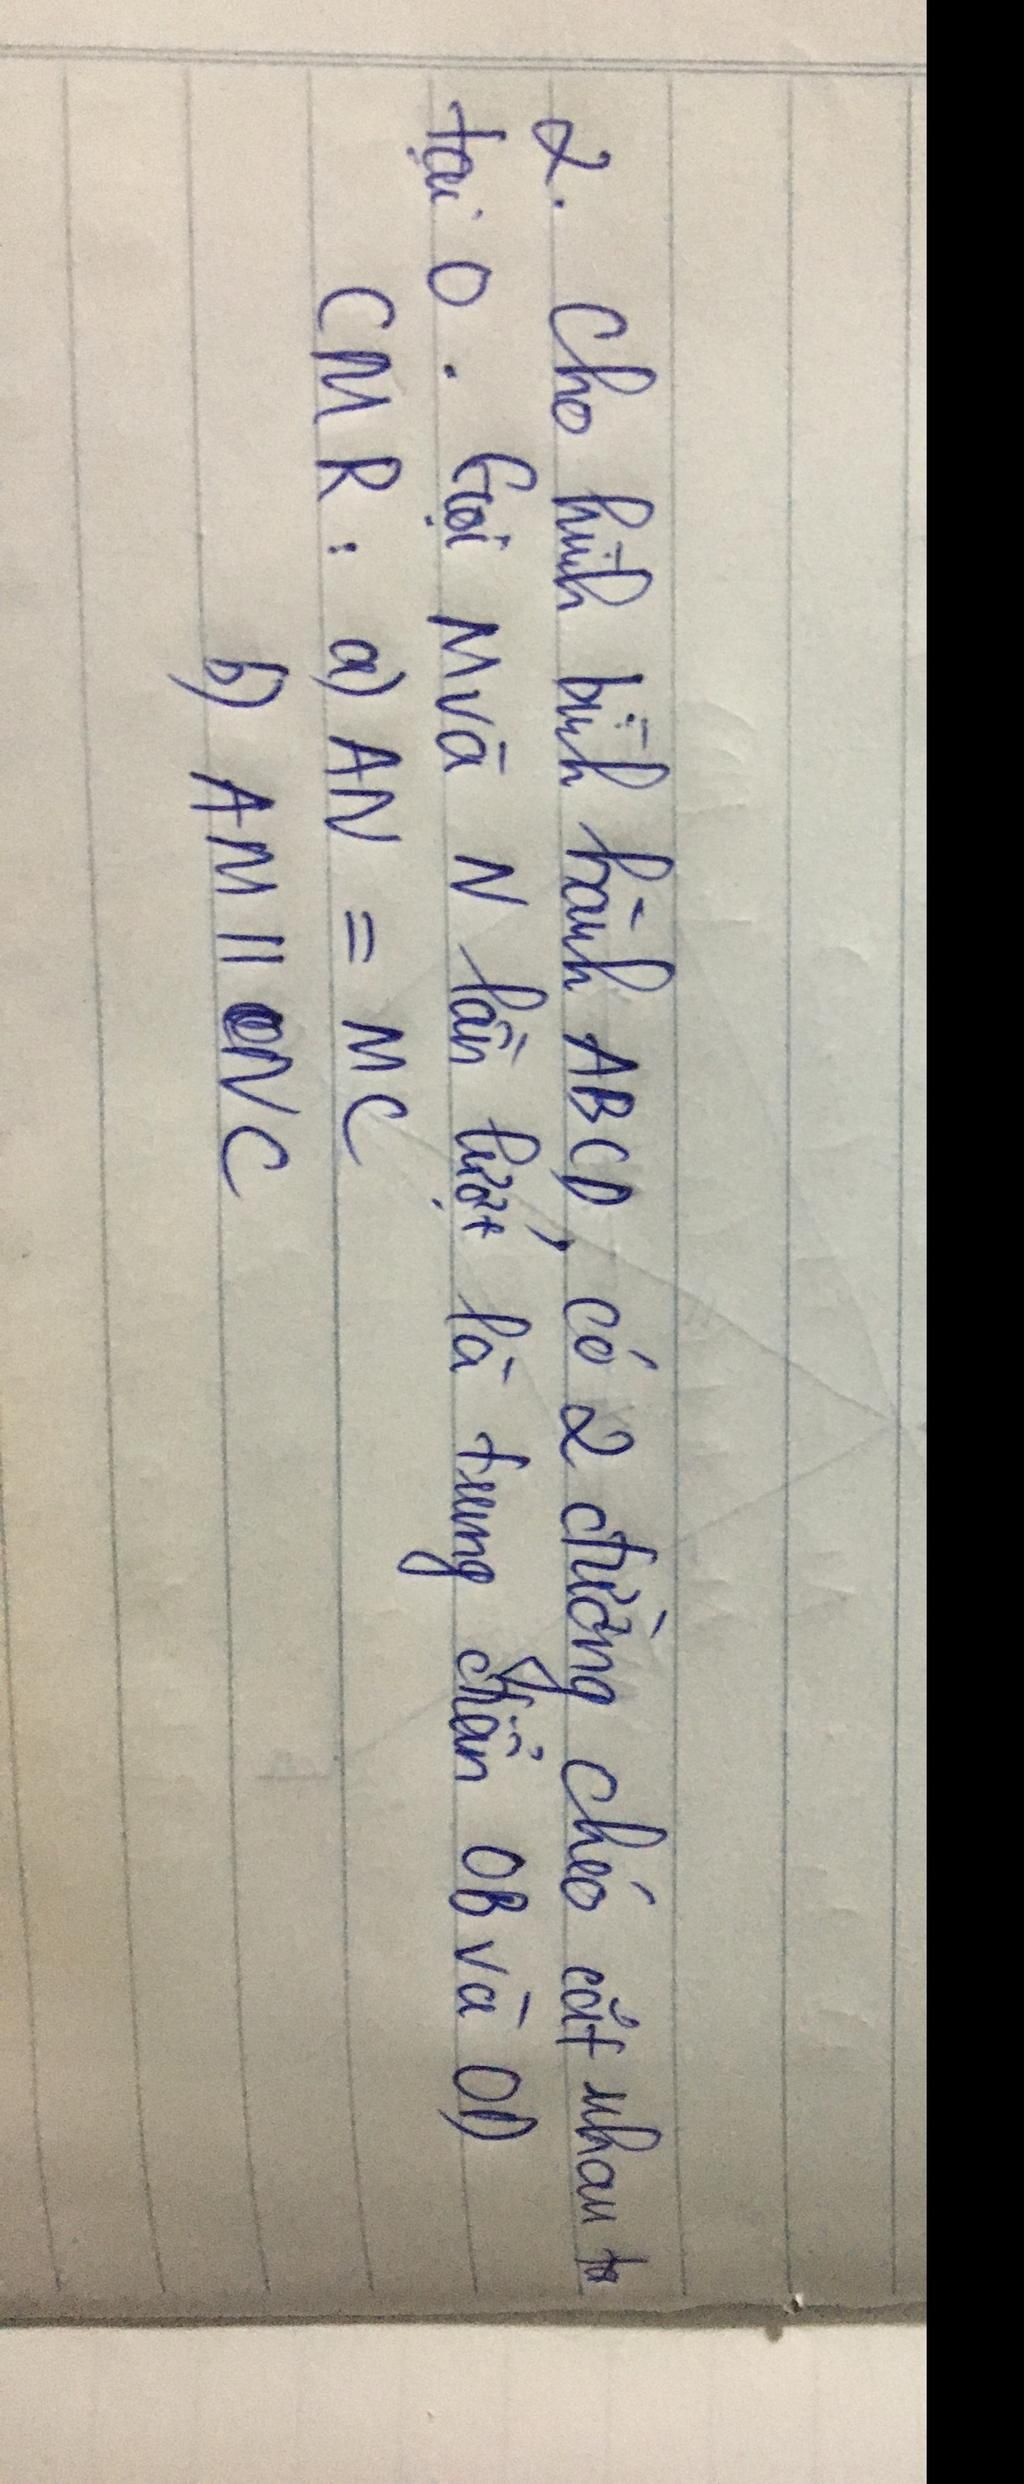 2. Cho hình bình hành ABCD, có 2 đường chéo cắt nhau
tại O. Gọi M và N lần lượt là trung điểm OB và OD
CMR: a) AN = MC
b) AM // NC